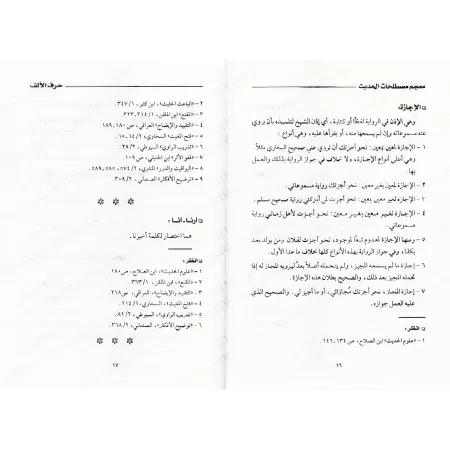 معجم مصطلحات الحديث
الإجازة:
وهي الإذن في الرواية لفظًا أو كتابة، أي إذن الشيخ لتلميذه بأن يروي
عنه مسموعاته وإن لم يسمعها منه، أو يقرأها عليه، وهي أنواع:
١ - الإجازة لمعين بمعين: نحو أجزتك أن تروي عني صحيح البخاري مثلاً
وهي أعلى أنواع الإجازة، ولا خلاف في جواز الرواية بذلك والعمل بها.
٢ - الإجازة لمعين بغير معين: نحو أجزتك رواية مسموعاتي.
٣ - الإجازة لغير معين بمعين: نحو أجزت لمن أدركني رواية صحيح مسلم.
٤ - الإجازة لغير معين بغير معين: نحو أجزت لأهل زماني رواية مسموعاتي.
٥ - ومنها الإجازة لمعدوم تبعًا لموجود، نحو أجزت لفلان ومن يولد بعد
وفي جواز الرواية بهذه الأنواع كلها خلاف ما عدا الأول.
٦ - إجازة ما لم يسمعه المجيز، ولم يتحمله أصلاً بعد ليرويه المجاز له إذا
تحمله المجيز بعد ذلك، والصحيح بطلان هذه الإجازة.
٧ - إجازة المجاز، نحو أجزتك مُجازاتي، أو ما أجيز لي، والصحيح الذي
عليه العمل جوازه.
انظر:
١ - «علوم الحديث» ابن الصلاح، ص ١٣٤، ١٤٦.
١٦
حرف الألف
٢ - «الباعث الحثيث»، ابن كثير، ٣٤٧/١.
٣ - «المقنع» ابن الملقن، ٣١٤/١، ٣٢٣.
٤ - «التقييد والإيضاح» العراقي، ص ١٨٠، ١٨٩.
٥ - «فتح المغيث» السخاوي، ٦٤/٢، ٦٥.
٦ - «تدريب الراوي» السيوطي، ٢٨/٢.
٧ - «قفو الأثر» ابن الحنبلي، ص ١٠٩.
٨ - «اليواقيت والدرر» المناوي، ٥٧٤/٢، ٥٨٥، ٥٨٩.
٩ - «توضيح الأفكار» الصنعاني، ٣٠٩/٢.
* * *
أرنا، أنا:
هما اختصار لكلمة أخبرنا.
انظر:
١ - «علوم الحديث»، ابن الصلاح، ص ١٨٠.
٢ - «المقنع»، ابن الملقن، ٣٦٣/١.
٣ - «التقييد والإيضاح»، العراقي، ص ٢١٨.
٤ - «فتح المغيث»، السخاوي، ٢١٥/١.
٥ - «تدريب الراوي»، السيوطي، ٨٢/٢.
٦ - «توضيح الأفكار»، الصنعاني، ٣٦٨/٢.
* * *
١٧